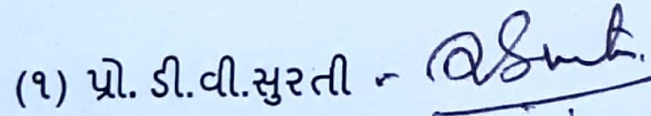 (૧) પ્રો. ડી.વી.સુરતી -